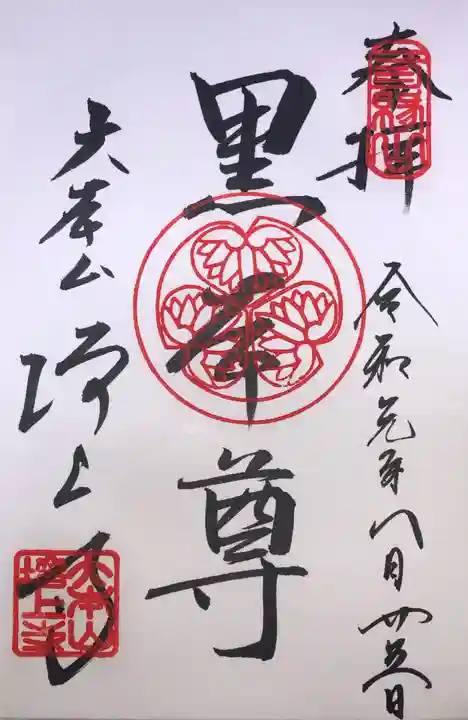 奉拝
令和元年八月廿五日
黒本尊
大本山増上寺
大本山増上寺